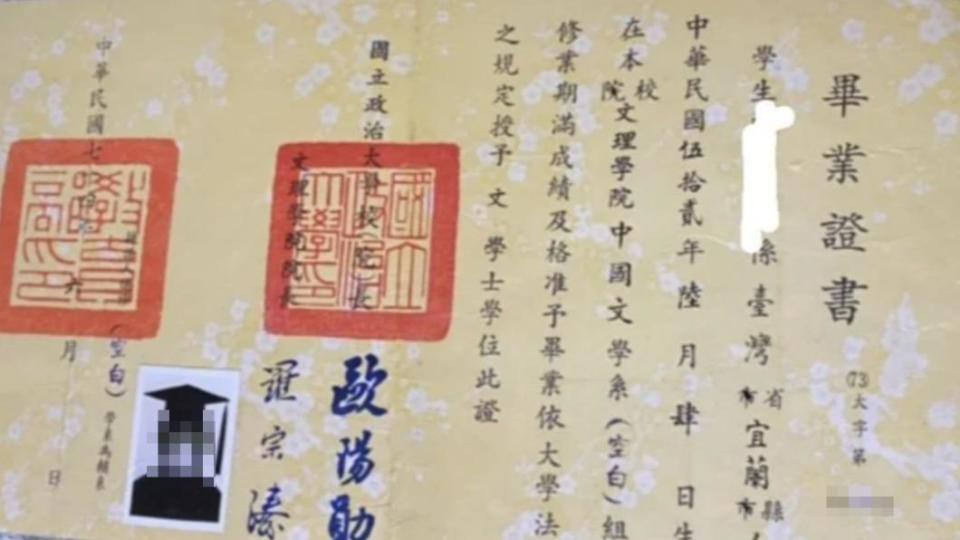 畢業證書
(73)大字第
學生
係臺灣省市宜蘭縣市人
中華民國伍拾貳年陸月肆日生
在本校院文理學院中國文學系(空白)組
修業期滿成績及格准予畢業依大學法
之規定授予文學士學位此證
國立政治大學校(院)長
歐陽勛
文理學院院長
羅宗濤
中華民國七十
六
月
日
(空白)